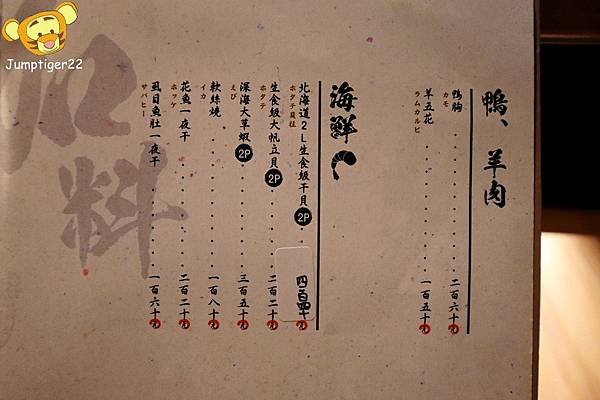 Jumptiger22
鴨、羊肉
鴨胸 二百六十元
カモ
羊五花 一百五十元
ラムカルビ
海鮮
北海道2L生食級干貝 2P 四百四十元
ホタテ貝柱
生食級大帆立貝 2P 二百二十元
ホタテ
深海大草蝦 2P 三百五十元
えび
軟絲燒 一百八十元
イカ
花魚一夜干 二百二十元
ホッケ
虱目魚肚一夜干 一百六十元
サバヒー
料